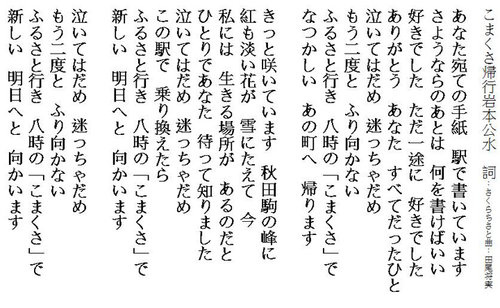 こまくさ帰行岩本公水　詞：さくらちさと曲：田尾将実
あなた宛ての手紙　駅で書いています
さようならのあとは　何を書けばいい
好きでした　ただ一途に　好きでした
ありがとう　あなた　すべてだったひと
泣いてはだめ　迷っちゃだめ
もう二度と　ふり向かない
ふるさと行き　八時の「こまくさ」で
なつかしい　あの町へ　帰ります
きっと咲いています　秋田駒の峰に
紅も淡い花が　雪にたえて　今
私には　生きる場所が　あるのだと
ひとりであなた　待って知りました
泣いてはだめ　迷っちゃだめ
この駅で　乗り換えたら
ふるさと行き　八時の「こまくさ」で
新しい　明日へと　向かいます
泣いてはだめ　迷っちゃだめ
もう二度と　ふり向かない
ふるさと行き　八時の「こまくさ」で
新しい　明日へと　向かいます